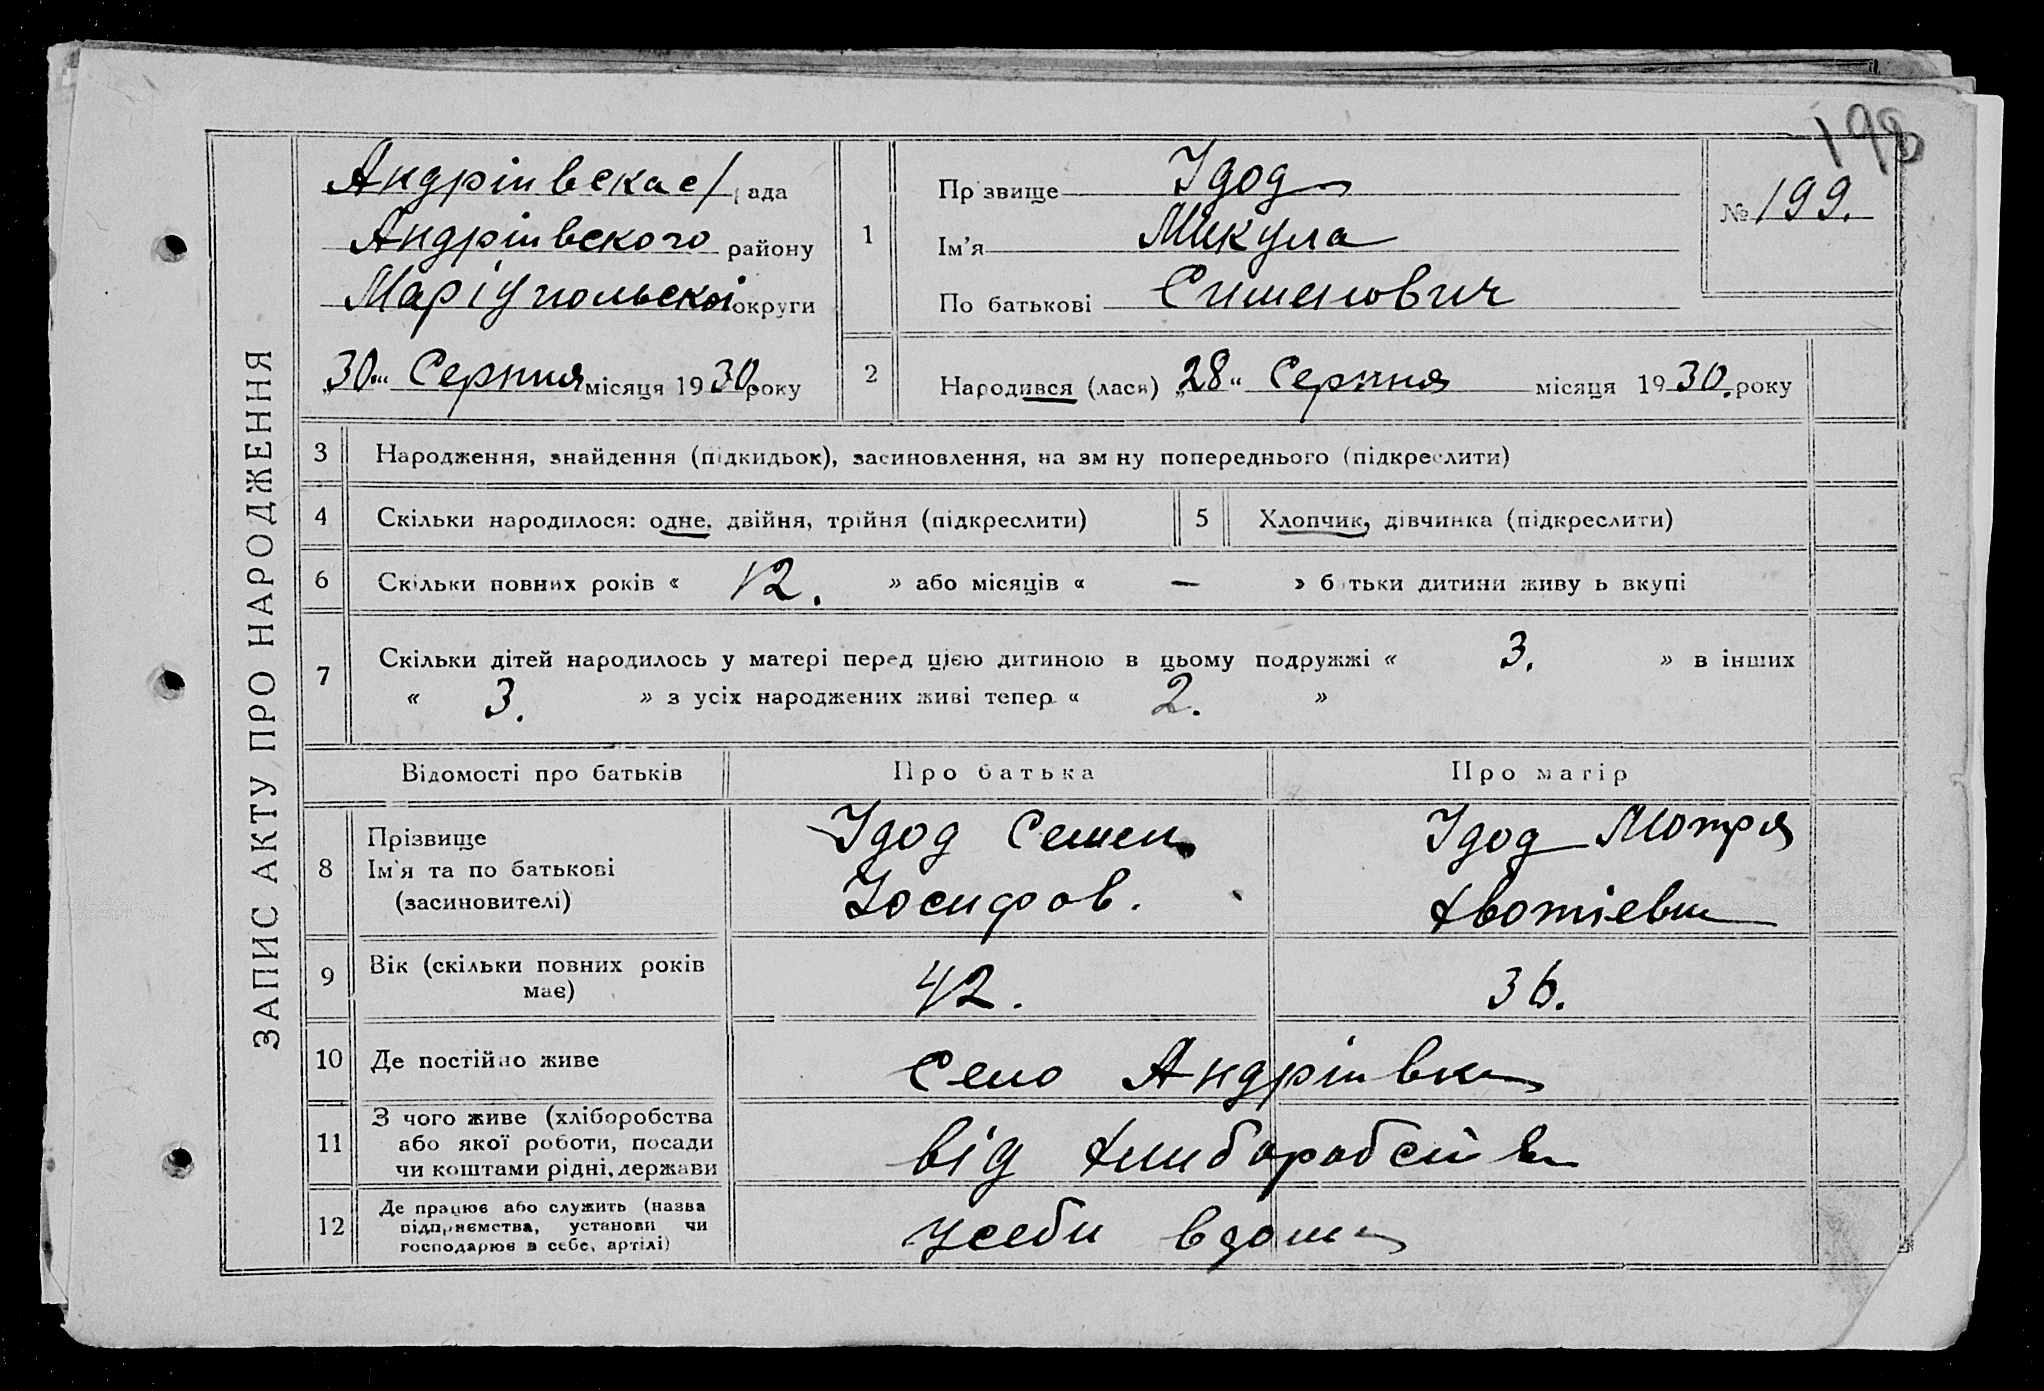 198
ЗАПИС АКТУ ПРО НАРОДЖЕННЯ
Андріивска с/рада
Андріивского району
Маріупольскої округи
„30“ Серпня місяця 1930 року
1
Прізвище Їдод
Ім'я Микула
По батькові Сименович
№ 199.
2
Народився (лася) „28“ Серпня місяця 1930. року
3 Народження, знайдення (підкидьок), засиновлення, на зміну попереднього (підкреслити)
4 Скільки народилося: одне, двійня, трійня (підкреслити)
5 Хлопчик, дівчинка (підкреслити)
6 Скільки повних років « 12. » або місяців « — » батьки дитини живуть вкупі
7 Скільки дітей народилось у матері перед цією дитиною в цьому подружжі « 3. » в інших
« 3. » з усіх народжених живі тепер « 2. »
Відомості про батьків Про батька Про матір
8 Прізвище
Ім'я та по батькові
(засиновителі)
Їдод Семен
Йосифов.
Їдод Мотря
9 Вік (скільки повних років
має)
42. 36.
10 Де постійно живе Село Андріивка
11 З чого живе (хліборобства
або якої роботи, посади
чи коштами рідні, держави
від хлиборобства
12 Де працює або служить (назва
підприємства, установи чи
господарює в себе, артілі)
усеби вдома